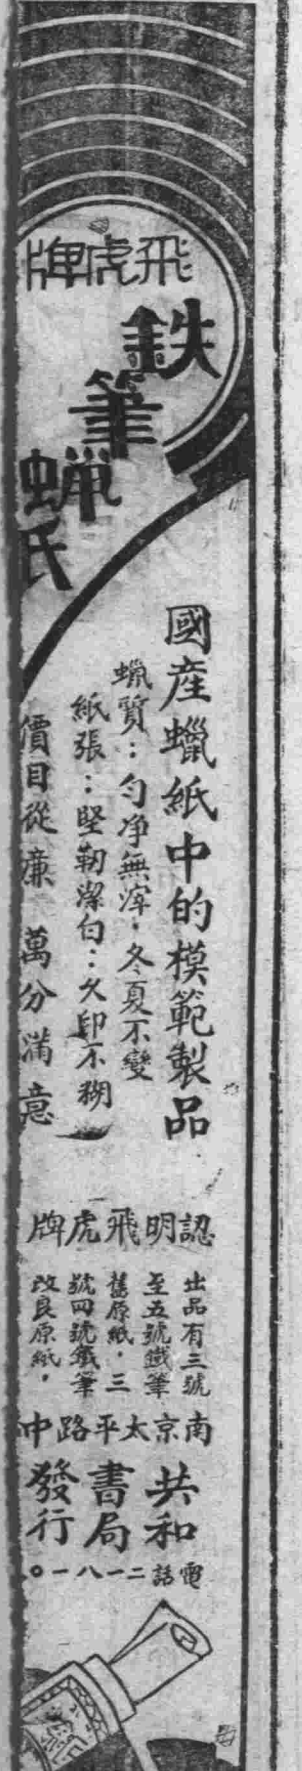 飛虎牌
鉄筆蝋氏
國産蠟紙中的模範製品
蠟質：勻净無滓，冬夏不變
紙張：堅韌潔白：久印不糊
價目從廉 萬分滿意
認明飛虎牌
出品有三號
至五號鐵筆
舊原紙，三
號四號鐵筆
改良原紙，
南京太平路中
共和
書局
發行
電話二一八一〇